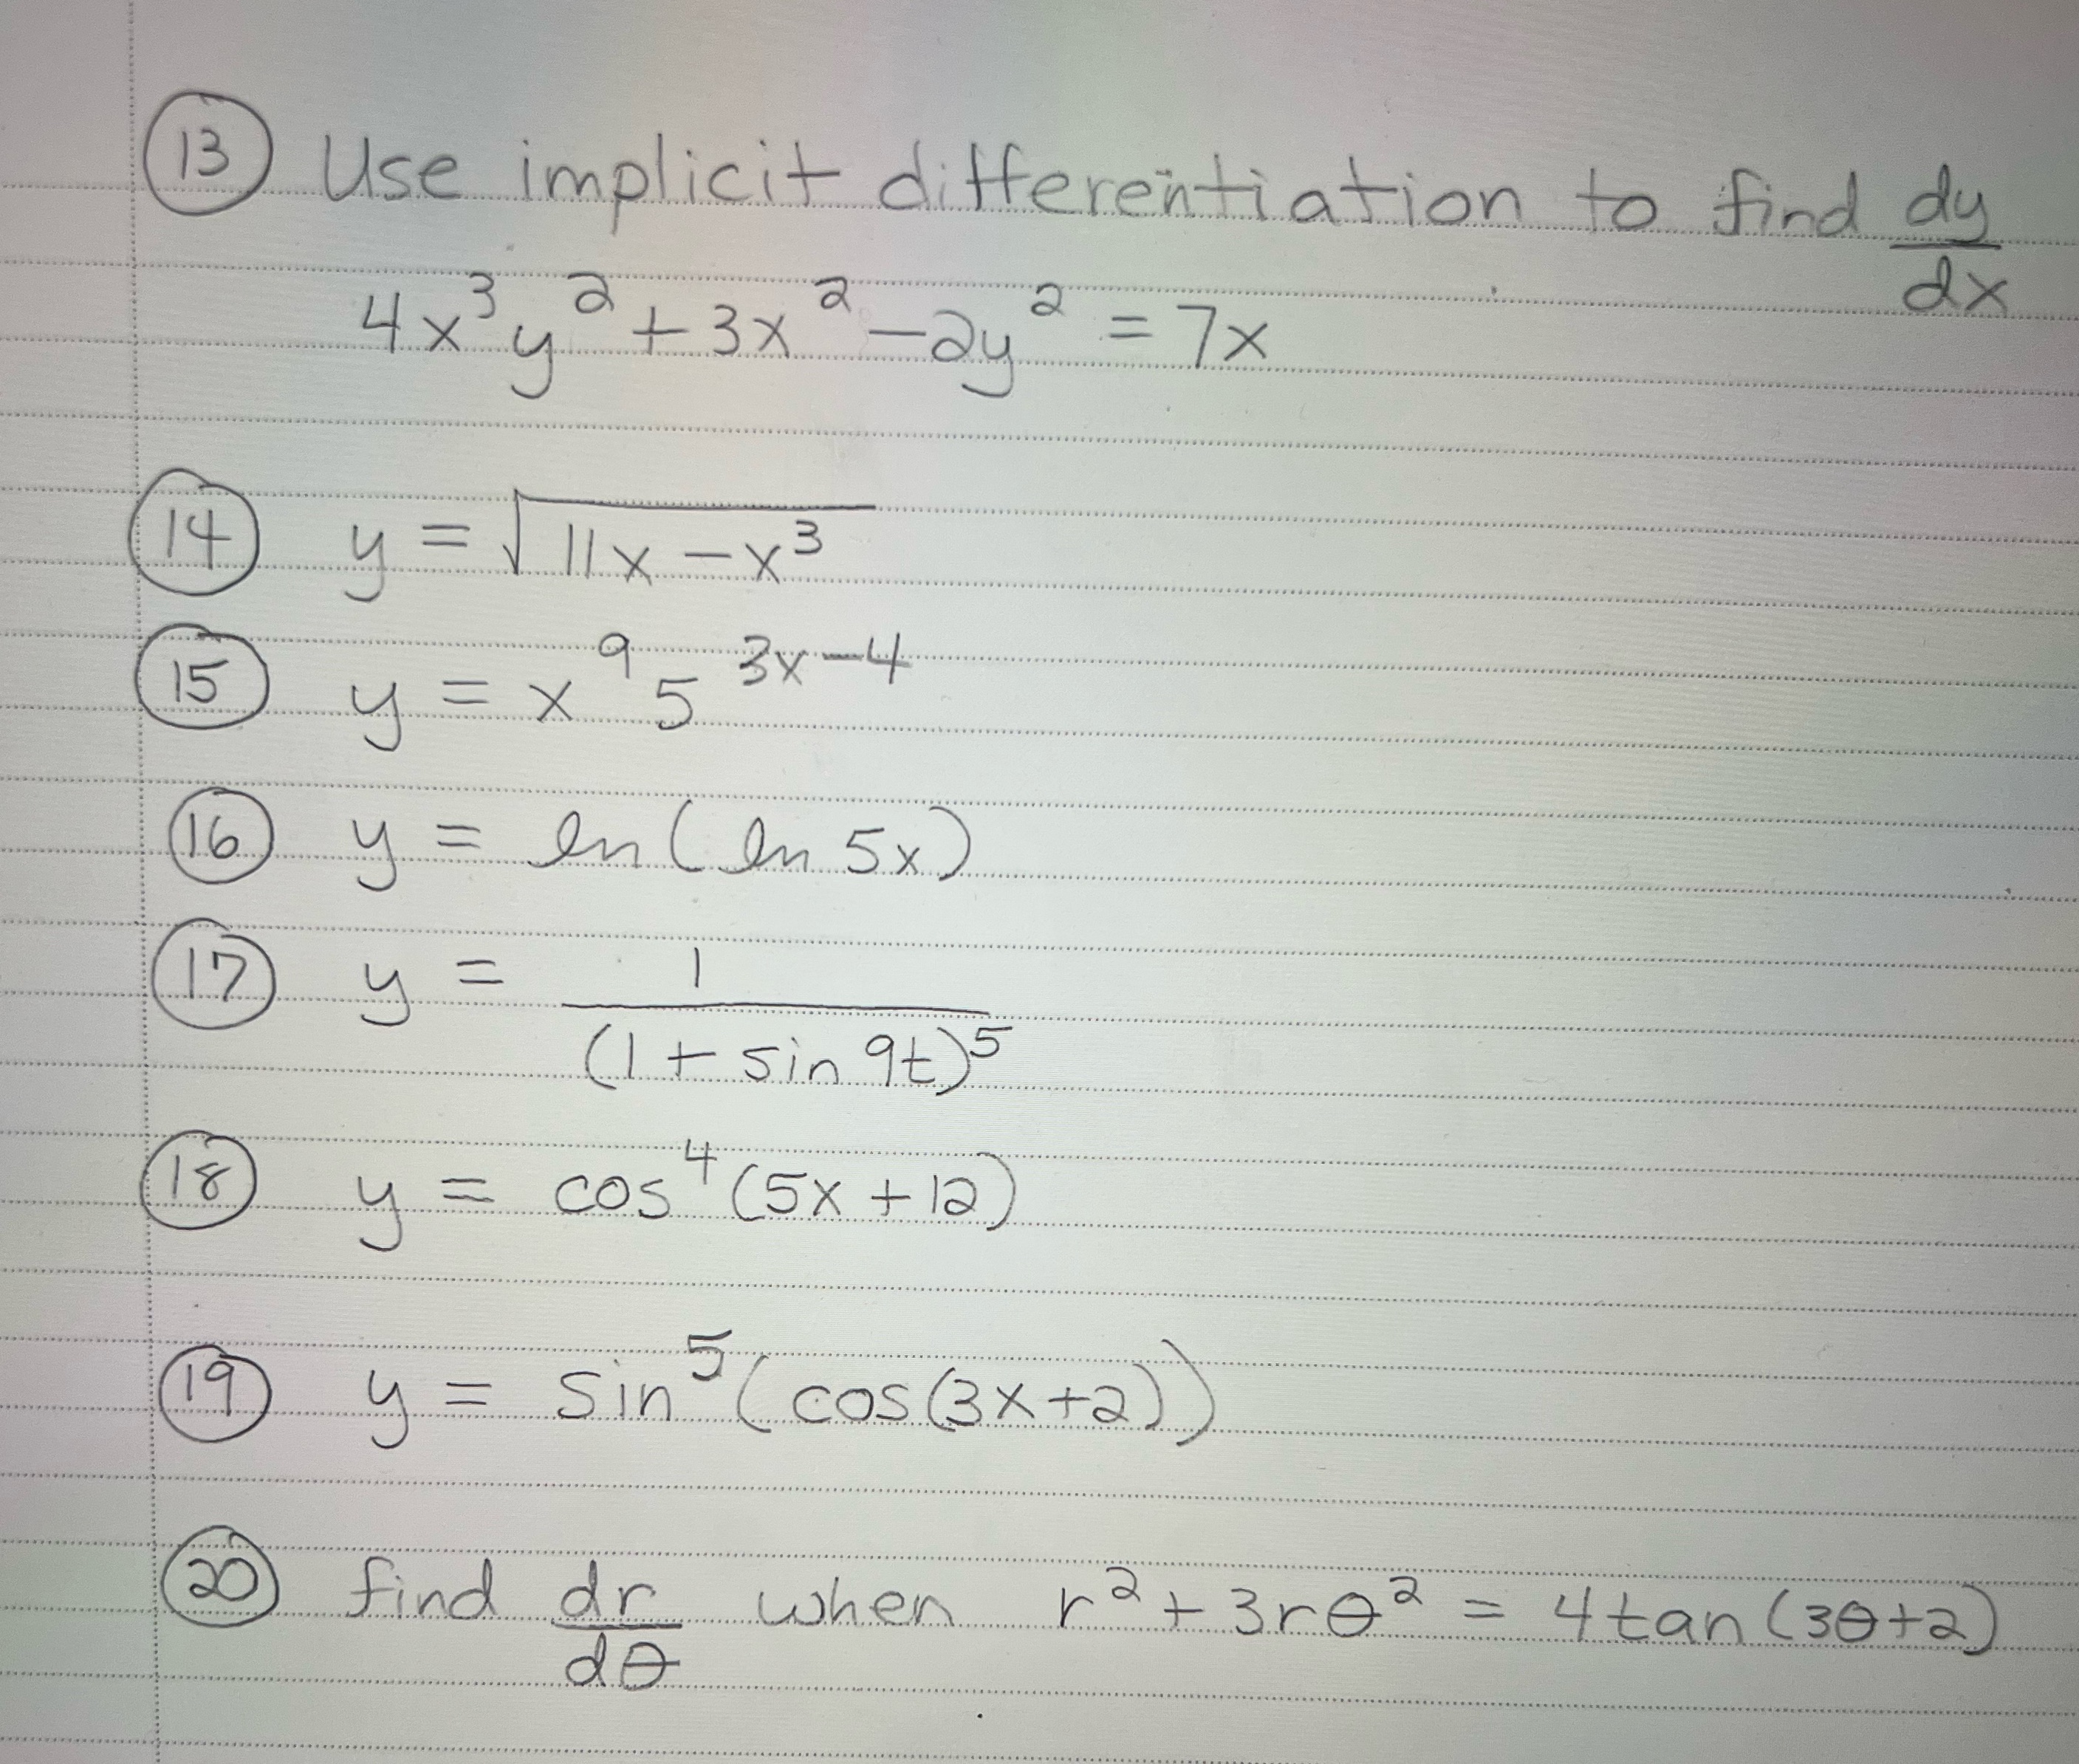 13 Use implicit differentiation to find dy/dx
4x³y² + 3x² - 2y² = 7x
14 y = √(11x - x³)
15 y = x⁹ 5³ˣ⁻⁴
16 y = ln(ln 5x)
17 y = 1/(1 + sin 9t)⁵
18 y = cos⁴(5x + 12)
19 y = sin⁵(cos(3x+2))
20 find dr/dθ when r² + 3rθ² = 4tan(3θ+2)